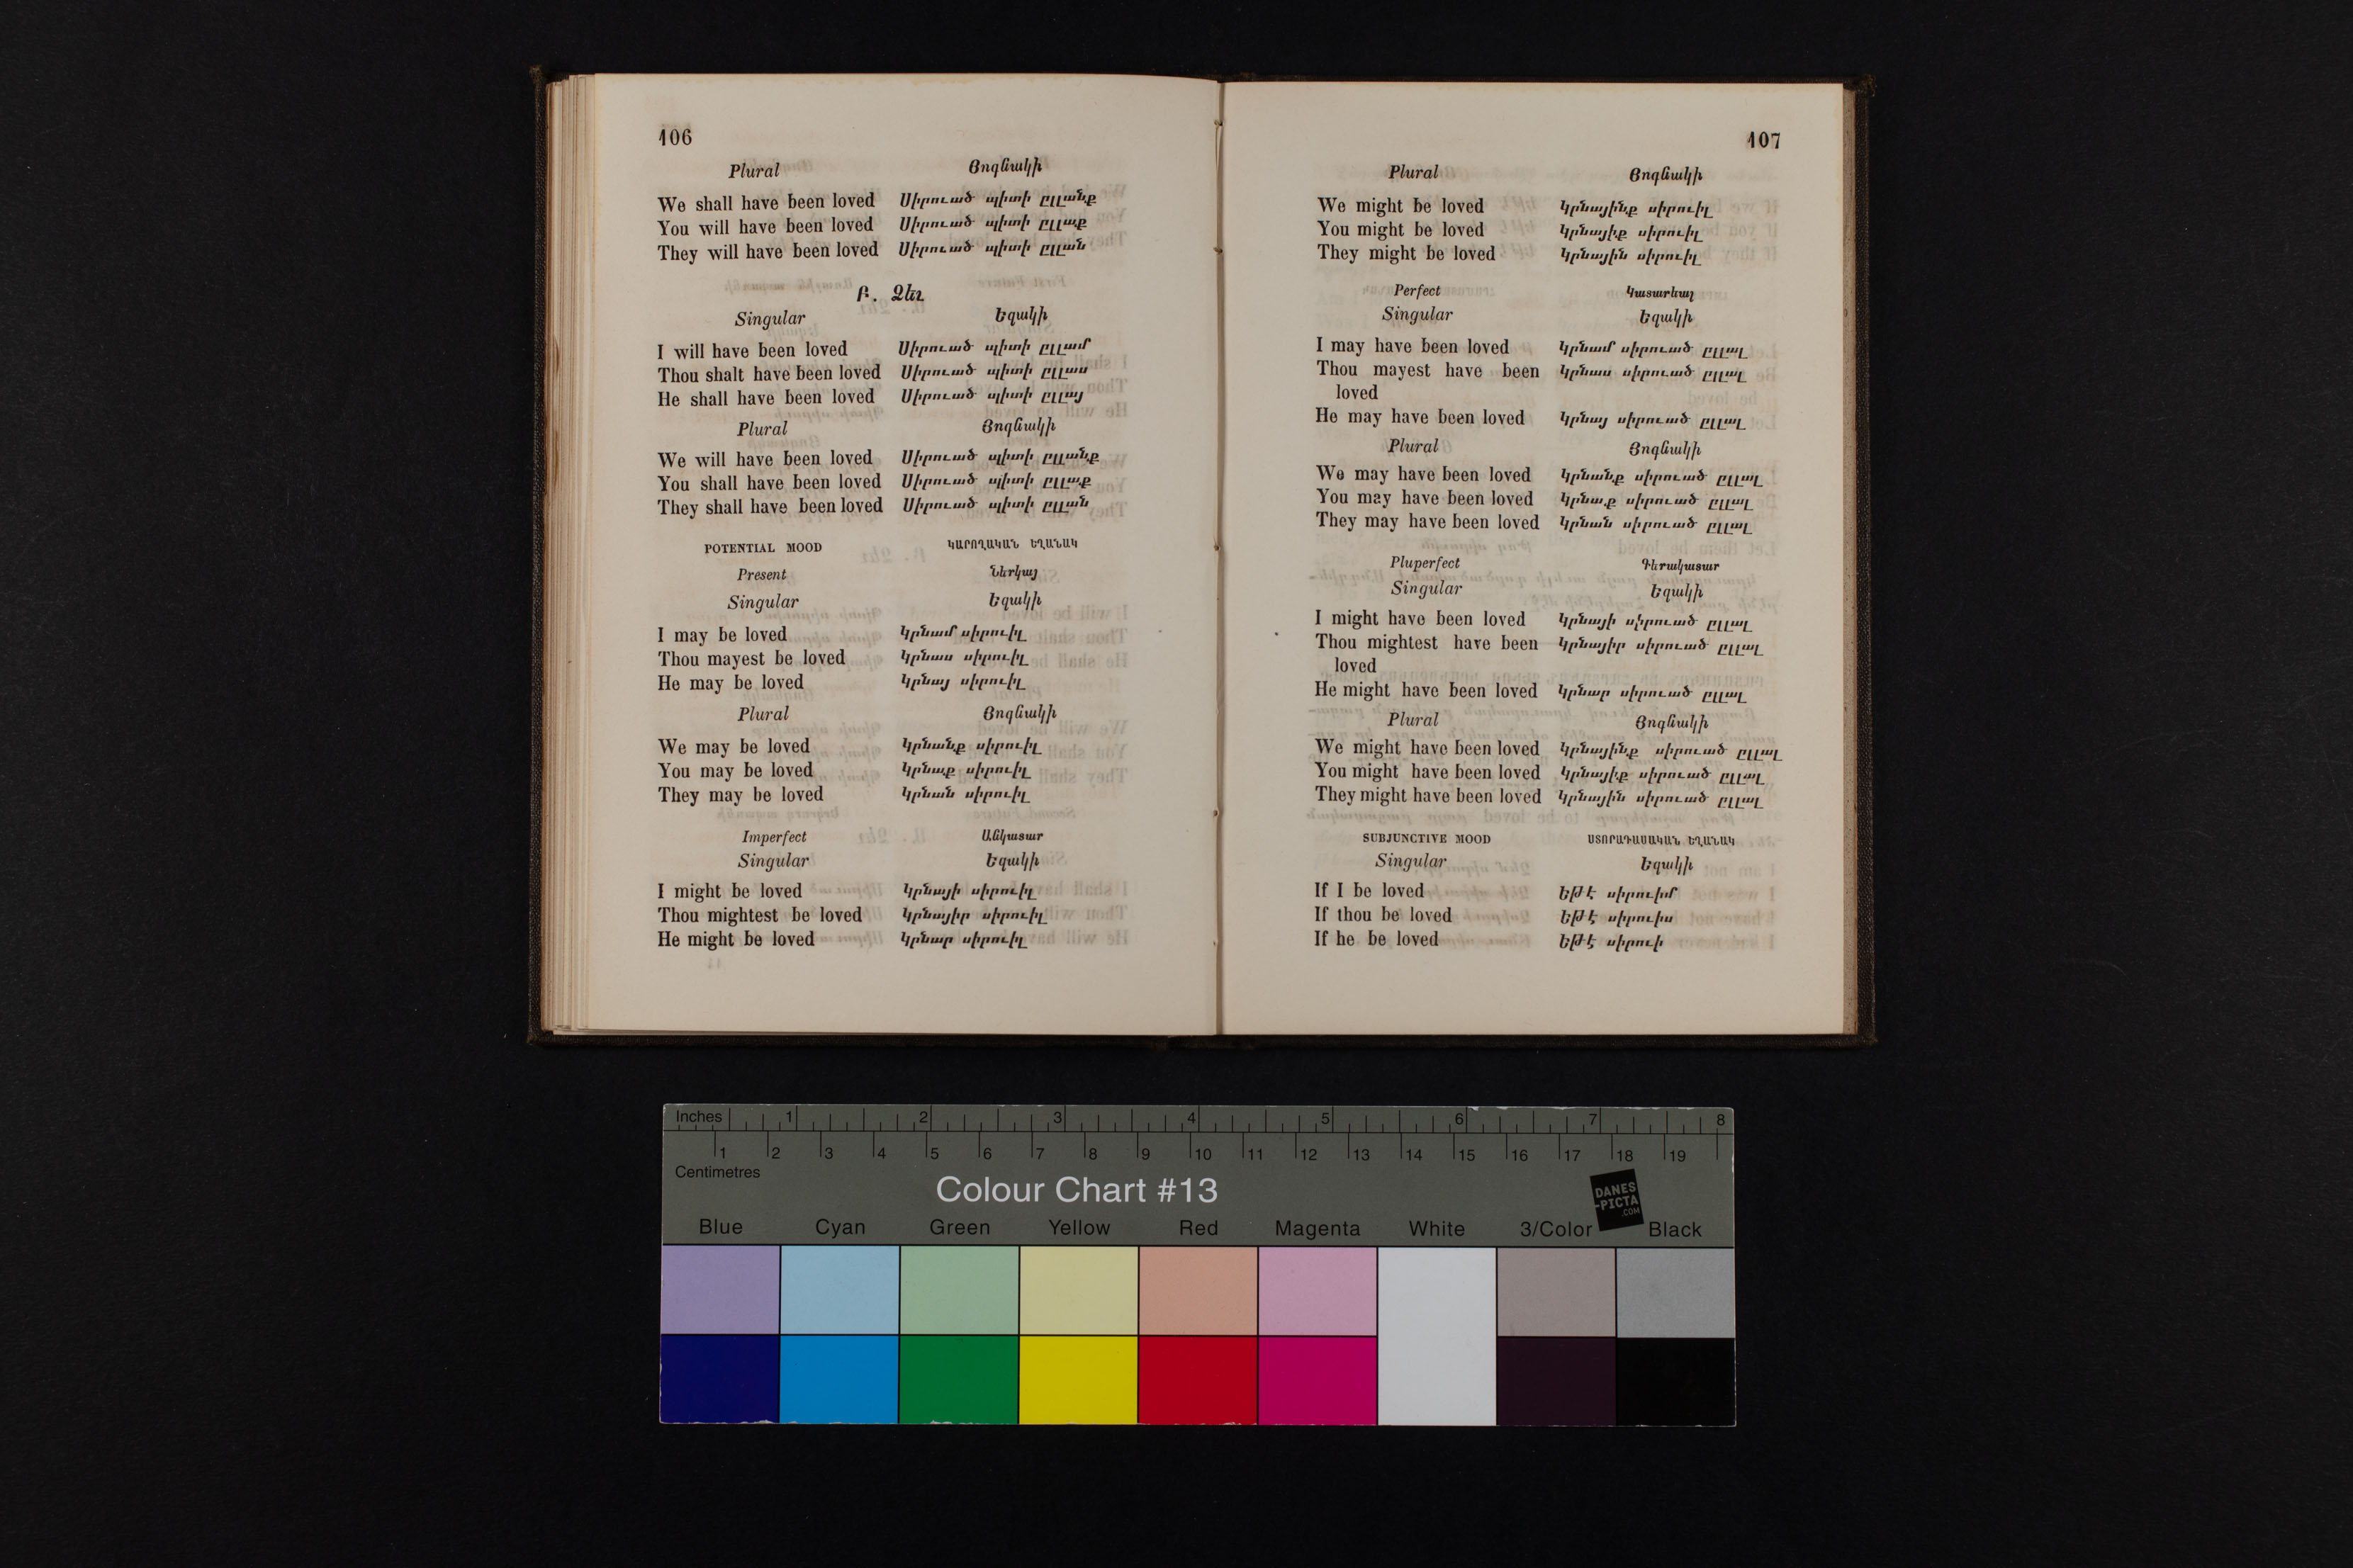 106
Plural Յոգնակի
We shall have been loved Սիրուած պիտի ըլլանք
You will have been loved Սիրուած պիտի ըլլաք
They will have been loved Սիրուած պիտի ըլլան
Բ. Ձեւ
Singular Եզակի
I will have been loved Սիրուած պիտի ըլլամ
Thou shalt have been loved Սիրուած պիտի ըլլաս
He shall have been loved Սիրուած պիտի ըլլայ
Plural Յոգնակի
We will have been loved Սիրուած պիտի ըլլանք
You shall have been loved Սիրուած պիտի ըլլաք
They shall have been loved Սիրուած պիտի ըլլան
POTENTIAL MOOD ԿԱՐՈՂԱԿԱՆ ԵՂԱՆԱԿ
Present Ներկայ
Singular Եզակի
I may be loved Կրնամ սիրուիլ
Thou mayest be loved Կրնաս սիրուիլ
He may be loved Կրնայ սիրուիլ
Plural Յոգնակի
We may be loved Կրնանք սիրուիլ
You may be loved Կրնաք սիրուիլ
They may be loved Կրնան սիրուիլ
Imperfect Անկատար
Singular Եզակի
I might be loved Կրնայի սիրուիլ
Thou mightest be loved Կրնայիր սիրուիլ
He might be loved Կրնար սիրուիլ
107
Plural Յոգնակի
We might be loved Կրնայինք սիրուիլ
You might be loved Կրնայիք սիրուիլ
They might be loved Կրնային սիրուիլ
Perfect Կատարեալ
Singular Եզակի
I may have been loved Կրնամ սիրուած ըլլալ
Thou mayest have been Կրնաս սիրուած ըլլալ
loved
He may have been loved Կրնայ սիրուած ըլլալ
Plural Յոգնակի
We may have been loved Կրնանք սիրուած ըլլալ
You may have been loved Կրնաք սիրուած ըլլալ
They may have been loved Կրնան սիրուած ըլլալ
Pluperfect Գերակատար
Singular Եզակի
I might have been loved Կրնայի սիրուած ըլլալ
Thou mightest have been Կրնայիր սիրուած ըլլալ
loved
He might have been loved Կրնար սիրուած ըլլալ
Plural Յոգնակի
We might have been loved Կրնայինք սիրուած ըլլալ
You might have been loved Կրնայիք սիրուած ըլլալ
They might have been loved Կրնային սիրուած ըլլալ
SUBJUNCTIVE MOOD ՍՏՈՐԱԴԱՍԱԿԱՆ ԵՂԱՆԱԿ
Singular Եզակի
If I be loved Եթէ սիրուիմ
If thou be loved Եթէ սիրուիս
If he be loved Եթէ սիրուի
Inches 1 2 3 4 5 6 7 8
1 2 3 4 5 6 7 8 9 10 11 12 13 14 15 16 17 18 19
Centimetres
Colour Chart #13
DANES
-PICTA
.COM
Blue Cyan Green Yellow Red Magenta White 3/Color Black